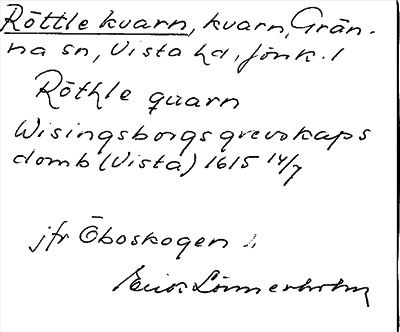 Röttle kvarn, kvarn, Grän-
na sn, Vista hd, Jönk. l
Röthle quarn
Wisingsborgs grevskaps
domb (Vista) 1615 14/7
jfr Öboskogen